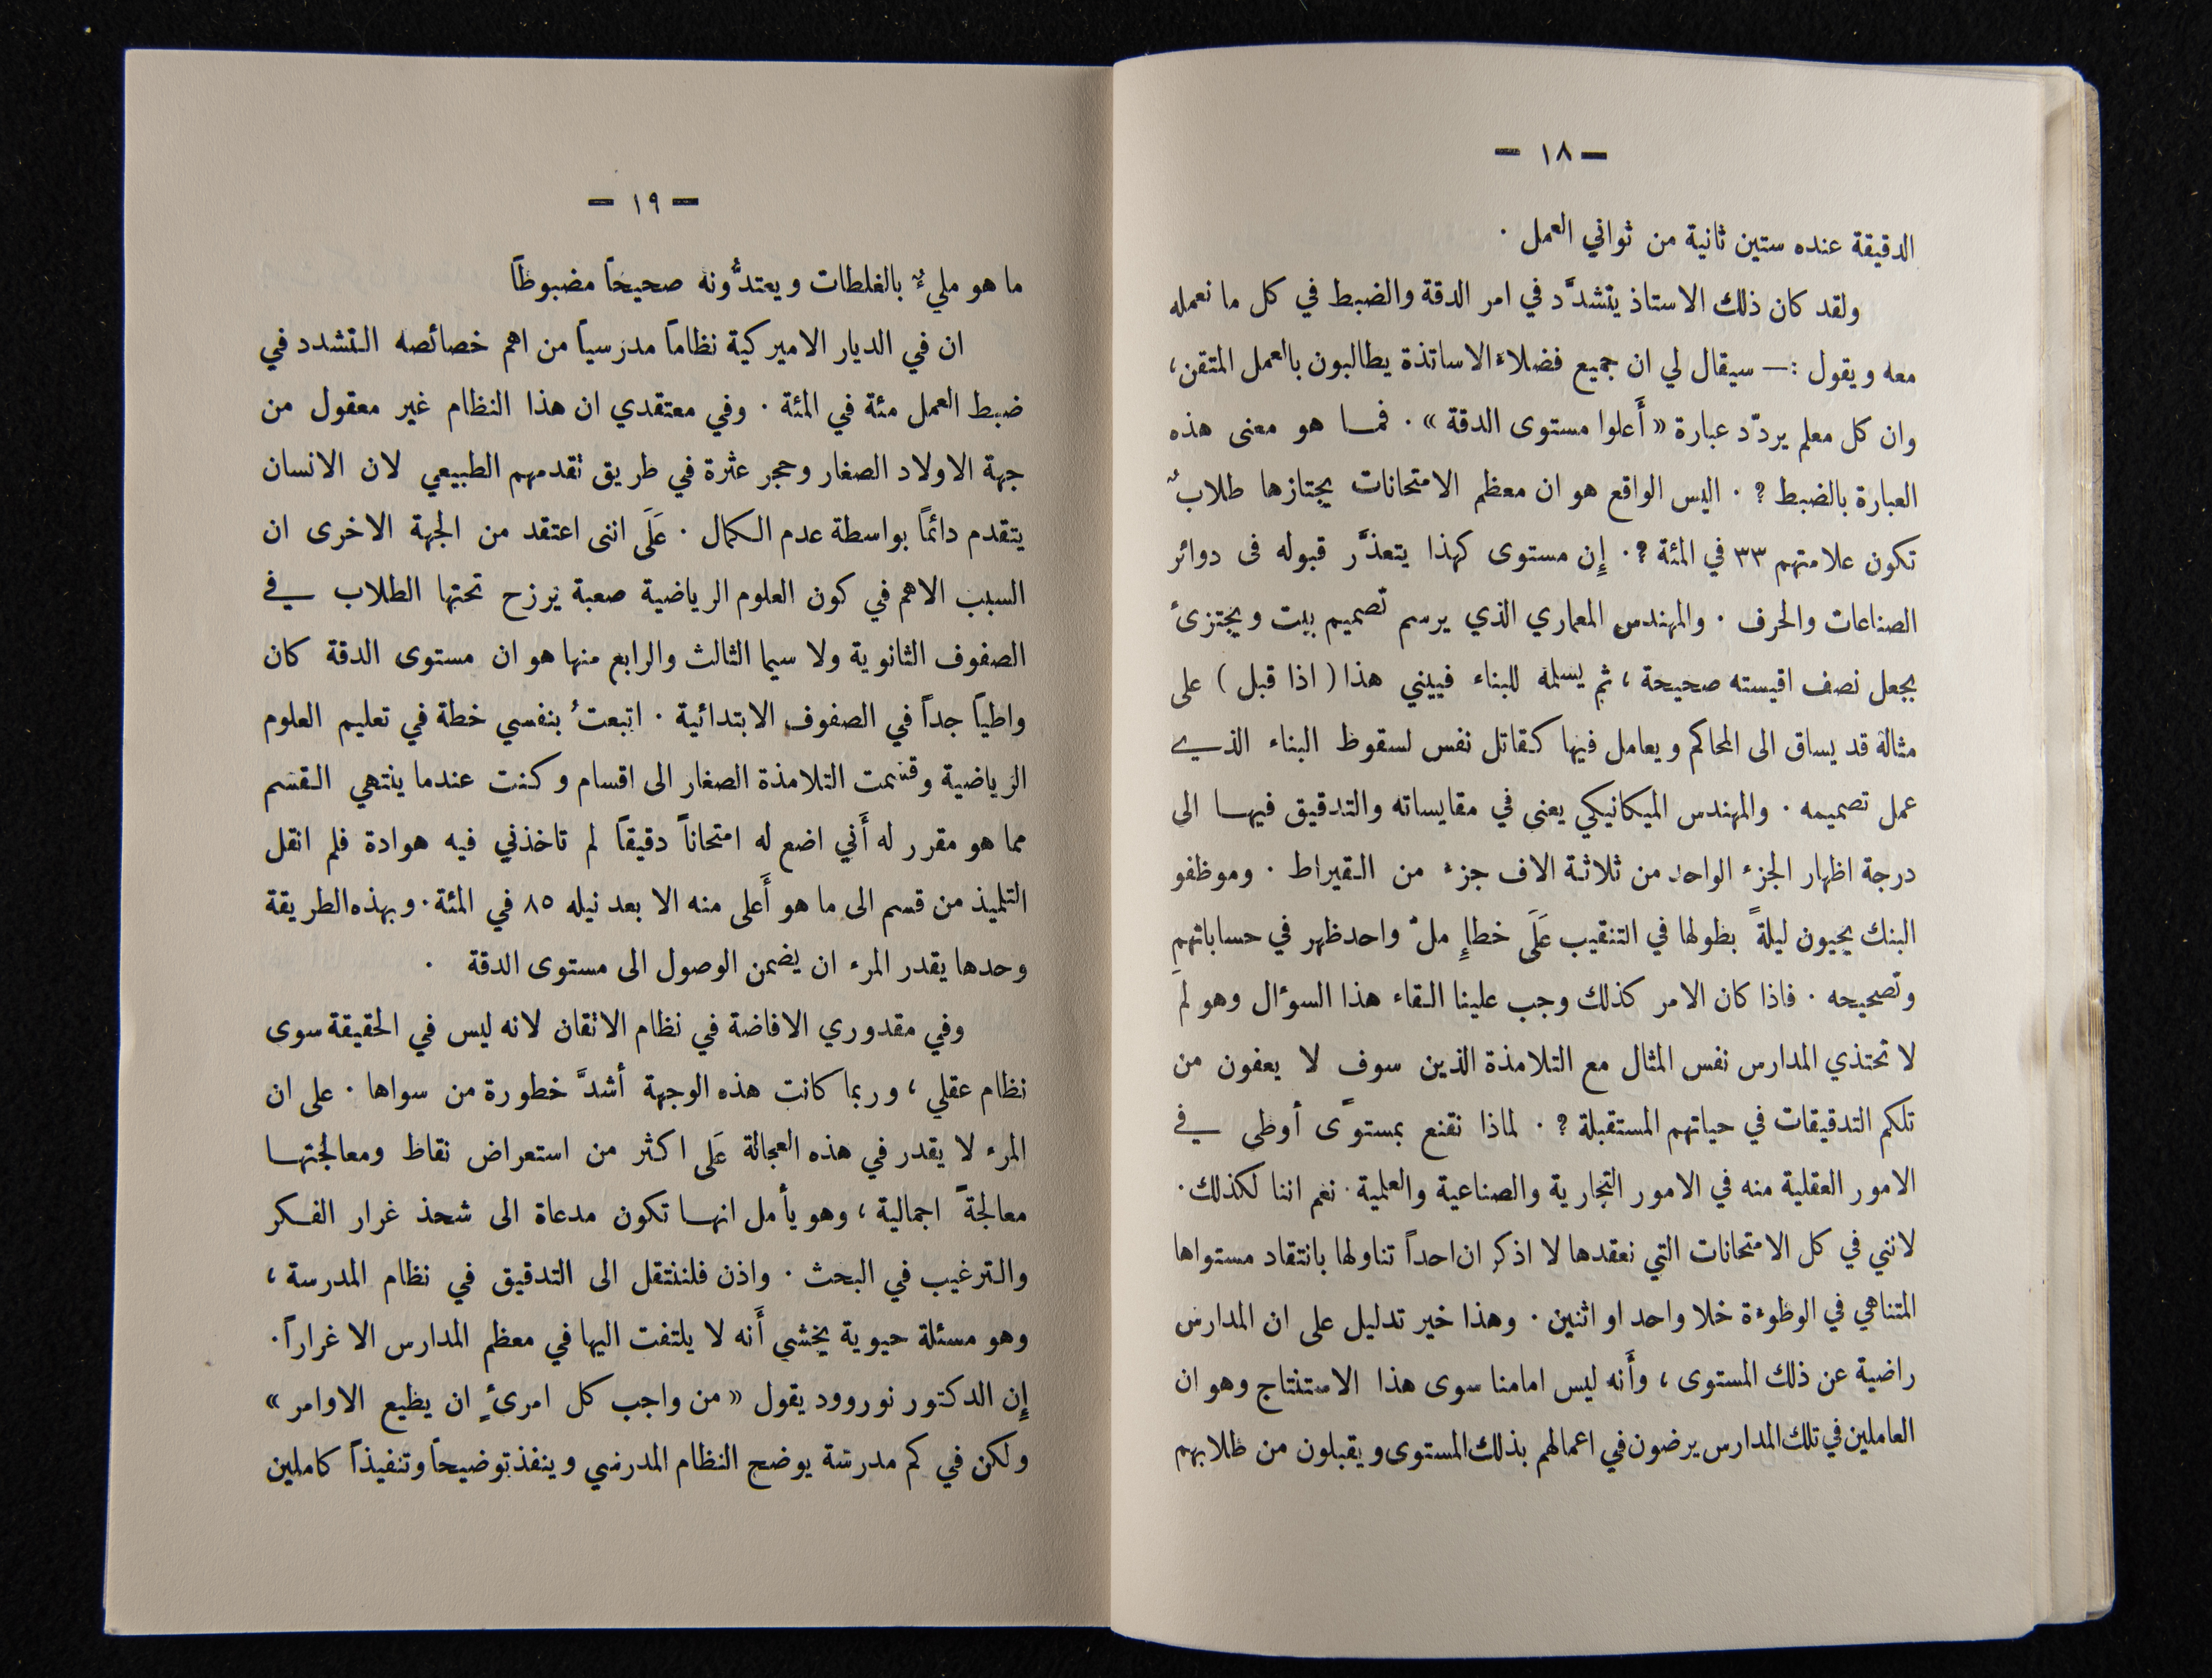 — ١٨ —
الدقيقة عنده ستين ثانية من ثواني العمل ·
ولقد كان ذلك الاستاذ يتشدَّد في امر الدقة والضبط في كل ما نعمله
معه ويقول :— سيقال لي ان جميع فضلاء الاساتذة يطالبون بالعمل المتقن،
وان كل معلم يردّد عبارة « أَعلوا مستوى الدقة » · فمـا هو معنى هذه
العبارة بالضبط ? · اليس الواقع هو ان معظم الامتحانات يجتازها طلابٌ
تكون علامتهم ٣٣ في المئة ?· إِن مستوى كهذا يتعذَّر قبوله فى دوائر
الصناعات والحرف · والمهندس المعماري الذي يرسم تصميم بيت ويجتزئ
بجعل نصف اقيسته صحيحة ، ثم يسلمه للبناء فيبني هذا ( اذا قبل ) على
مثاله قد يساق الى المحاكم ويعامل فيها كقاتل نفس لسقوط البناء الذي
عمل تصميمه · والمهندس الميكانيكي يعنى في مقايساته والتدقيق فيهـا الى
درجة اظهار الجزء الواحد من ثلاثـة الاف جزء من القيراط · وموظفو
البنك يحيون ليلةً بطولها في التنقيب عَلَى خطإِ ملٍ واحد ظهر في حساباتهم
وتصحيحه · فاذا كان الامر كذلك وجب علينا القاء هذا السوءال وهو لمَ
لا تحتذي المدارس نفس المثال مع التلامذة الذين سوف لا يعفون من
تلكم التدقيقات في حياتهم المستقبلة ? · لماذا نقنع بمستوًى أوطى في
الامور العقلية منه في الامور التجارية والصناعية والعلمية · نعم اننا لكذلك ·
لانني في كل الامتحانات التي نعقدها لا اذكر ان احداً تناولها بانتقاد مستواها
المتناهي في الوطوءة خلا واحد او اثنين · وهذا خير تدليل على ان المدارس
راضية عن ذلك المستوى ، وأَنه ليس امامنا سوى هذا الاستنتاج وهو ان
العاملين في تلك المدارس يرضون في اعمالهم بذلك المستوى ويقبلون من طلابهم
— ١٩ —
ما هو مليءٌ بالغلطات ويعتدُّونه صحيحاً مضبوطاً
ان في الديار الاميركية نظاماً مدرسياً من اهم خصائصه التشدد في
ضبط العمل مئة في المئة · وفي معتقدي ان هذا النظام غير معقول من
جهة الاولاد الصغار وحجر عثرة في طريق تقدمهم الطبيعي لان الانسان
يتقدم دائماً بواسطة عدم الكمال · عَلَى اننى اعتقد من الجهة الاخرى ان
السبب الاهم في كون العلوم الرياضية صعبة يرزح تحتها الطلاب في
الصفوف الثانوية ولا سيما الثالث والرابع منها هو ان مستوى الدقة كان
واطياً جداً في الصفوف الابتدائية · اتبعتُ بنفسي خطة في تعليم العلوم
الرياضية وقسمت التلامذة الصغار الى اقسام وكنت عندما ينتهي القسم
مما هو مقرر له أَني اضع له امتحاناً دقيقاً لم تاخذني فيه هوادة فلم انقل
التلميذ من قسم الى ما هو أَعلى منه الا بعد نيله ٨٥ في المئة · وبهذه الطريقة
وحدها يقدر المرء ان يضمن الوصول الى مستوى الدقة ·
وفي مقدوري الافاضة في نظام الاتقان لانه ليس في الحقيقة سوى
نظام عقلي ، وربما كانت هذه الوجهة أشدَّ خطورة من سواها · على ان
المرء لا يقدر في هذه العجالة عَلَى اكثر من استعراض نقاط ومعالجتهـا
معالجةً اجمالية ، وهو يأمل انهـا تكون مدعاة الى شحذ غرار الفـكر
والترغيب في البحث · واذن فلننتقل الى التدقيق في نظام المدرسة ،
وهو مسئلة حيوية يخشي أَنه لا يلتفت اليها في معظم المدارس الا غراراً ·
إِن الدكتور نوروود يقول « من واجب كل امرئٍ ان يطيع الاوامر »
ولكن في كم مدرسة يوضح النظام المدرسي وينفذ توضيحاً وتنفيذاً كاملين